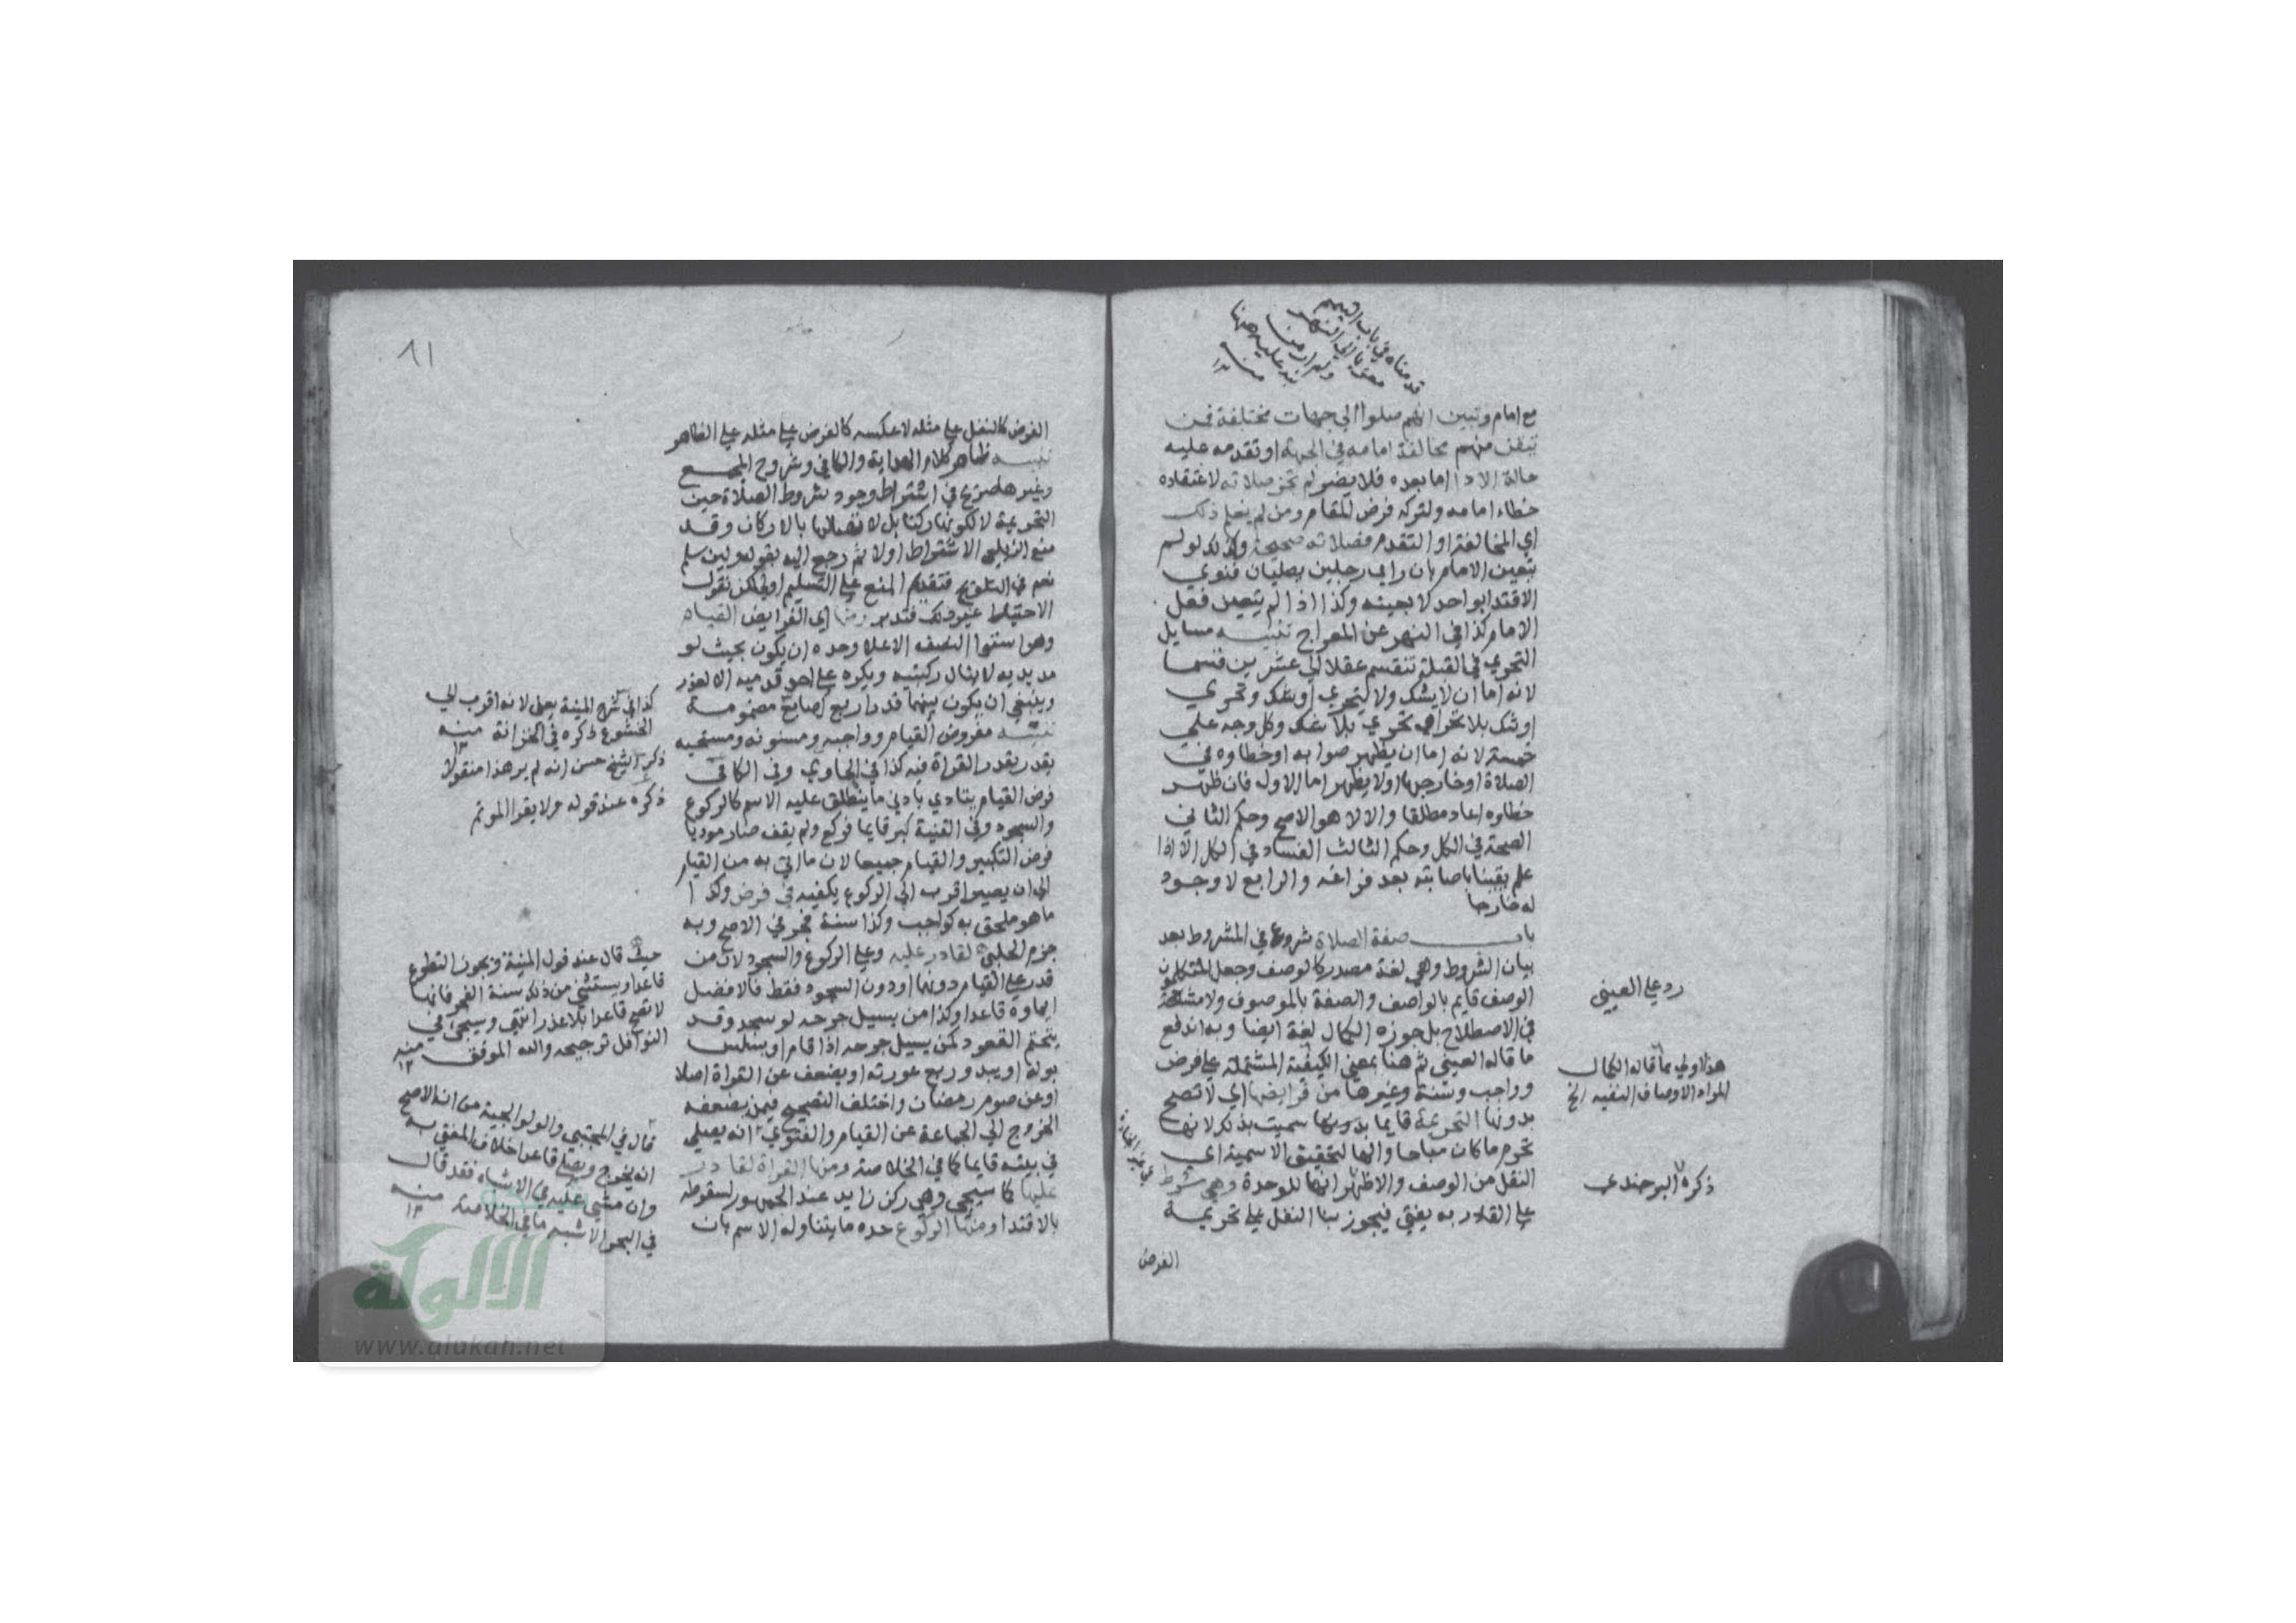 مع امام وتبين انهم صلوا الي جهات مختلفة فمن
تيقن منهم مخالفة امامه في الجهة او تقدمه عليه
حالة الادا اما بعده فلا يضر لم تجز صلاته لاعتقاده
خطاء امامه ولتركه فرض المقام ومن لم يعلم ذلك
اي المخالفة او التقدم فصلاته صحيحة وكذلك لو لم
يتعين الامام بان راي رجلين يصليان فنوي
الاقتدا بواحد لا بعينه وكذا اذا لم يتعين فعل
الامام كذا في النهر عن المعراج تنبيه مسايل
التحري في القبلة تنقسم عقلا الي عشرين قسما
لانه اما ان لا يشك ولا يتحري او شك وتحري
او شك بلا تحر او تحري بلا شك وكل وجه علي
خمسة لانه اما ان يظهر صوابه او خطاوه في
الصلاة او خارجها او لا يظهر اما الاول فان ظهر
خطاوه اعاد مطلقا والا لا هو الاصح وحكم الثاني
الصحة في الكل وحكم الثالث الفساد في الكل الا اذا
علم يقينا باصابته بعد فراغه والرابع لا وجود
له خارجا
باب صفة الصلاة شروع في المشروط بعد
بيان الشروط وهي لغة مصدر كالوصف وجعل المتكلمون
الوصف قايم بالواصف والصفة بالموصوف ولا مشاحة
في الاصطلاح بل جوزه الكمال لغة ايضا وبه اندفع
ما قاله العيني ثم هنا بمعني الكيفية المشتملة علي فرض
وواجب وسنة وغيرها من فرايضها اي لا تصح
بدونها التحريمة قايما بدونها سميت بذلك لانها
تحرم ما كان مباحا والها لتحقيق الاسمية اي
النقل من الوصف والاظهر انها للوحدة وهي شرط
علي القادر به يفتي فيجوز بنا النفل علي تحريمة
الفرض
قدمناه في باب التيمم
رد علي العيني
هذا اولي مما قاله الكمال
المراد الاوصاف النفيه الخ
ذكره البرجندي
٨١
الفرض كالنفل علي مثله لا عكسه كالفرض علي مثله علي الظاهر
تنبيه ظاهر كلام الهداية والكافي وشروح المجمع
وغيرها صريح في اشتراط وجود شروط الصلاة حين
التحريمة لا لكونها ركنا بل لاتصالها بالاركان وقد
منع الزيلعي الاشتراط اولا ثم رجع اليه بقوله ولين سلم
نعم في التلويح فتقديم المنع علي التسليم اولي لكن نقول
الاحتياط غير ذلك فتدبر ومنها اي الفرايض القيام
وهو استوا النصف الاعلا وحده ان يكون بحيث لو
مد يديه لا ينال ركبتيه ويكره علي احد قدميه الا لعذر
وينبغي ان يكون بينهما قدر اربع اصابع مضمومة
تنبيه مفروض القيام وواجبه ومسنونه ومستحبه
يقدر بقدر القراة فيه كذا في الحاوي وفي الكافي
فرض القيام يتادي بادني ما ينطلق عليه الاسم كالركوع
والسجود وفي القنية كبر قايما فركع ولم يقف صار موديا
فرض التكبير والقيام جميعا لان ما اتي به من القيام
الي ان يصير اقرب الي الركوع يكفيه في فرض وكذا
ما هو ملحق به كواجب وكذا سنة فجر في الاصح وبه
جزم الحلبي لقادر عليه وعلي الركوع والسجود لان من
قدر علي القيام دونها او دون السجود فقط فالافضل
ايماوه قاعدا وكذا من يسيل جرحه لو سجد وقد
يتحتم القعود لمن يسيل جرحه اذا قام او يسلس
بوله او يبدو ربع عورته او يضعف عن القراة اصلا
او عن صوم رمضان واختلف التصحيح فيمن يضعفه
الخروج الي الجماعة عن القيام والفتوي انه يصلي
في بيته قايما كما في الخلاصة ومنها القراة لقادر
عليها كما سيجي وهي ركن زايد عند الجمهور لسقوطه
بالاقتدا ومنها الركوع حده ما يتناوله الاسم بان
كذا في شرح المنية يعلي لانه اقرب الي
الخشوع ذكره في الخزانة منه
ذكر الشيخ حسن انه لم ير هذا منقولا
ذكره عند قوله ولا يقرا الموتم
حيث قال عند قول المنية ويجوز التطوع
قاعدا ويستثني من ذلك سنة الفجر فانها
لا تصح قاعدا بلا عذر انتهي وسيجي في
النوافل ترجيحه والله الموفق منه
قال في المجتبي والولوالجية من انه الاصح
انه يخرج ويصلي قاعدا خلاف المفتي به
وان مشي عليه في الاشباه فقد قال
في البحر الاشبه ما في الخلاصة منه
شبكة
الألوكة
www.alukah.net